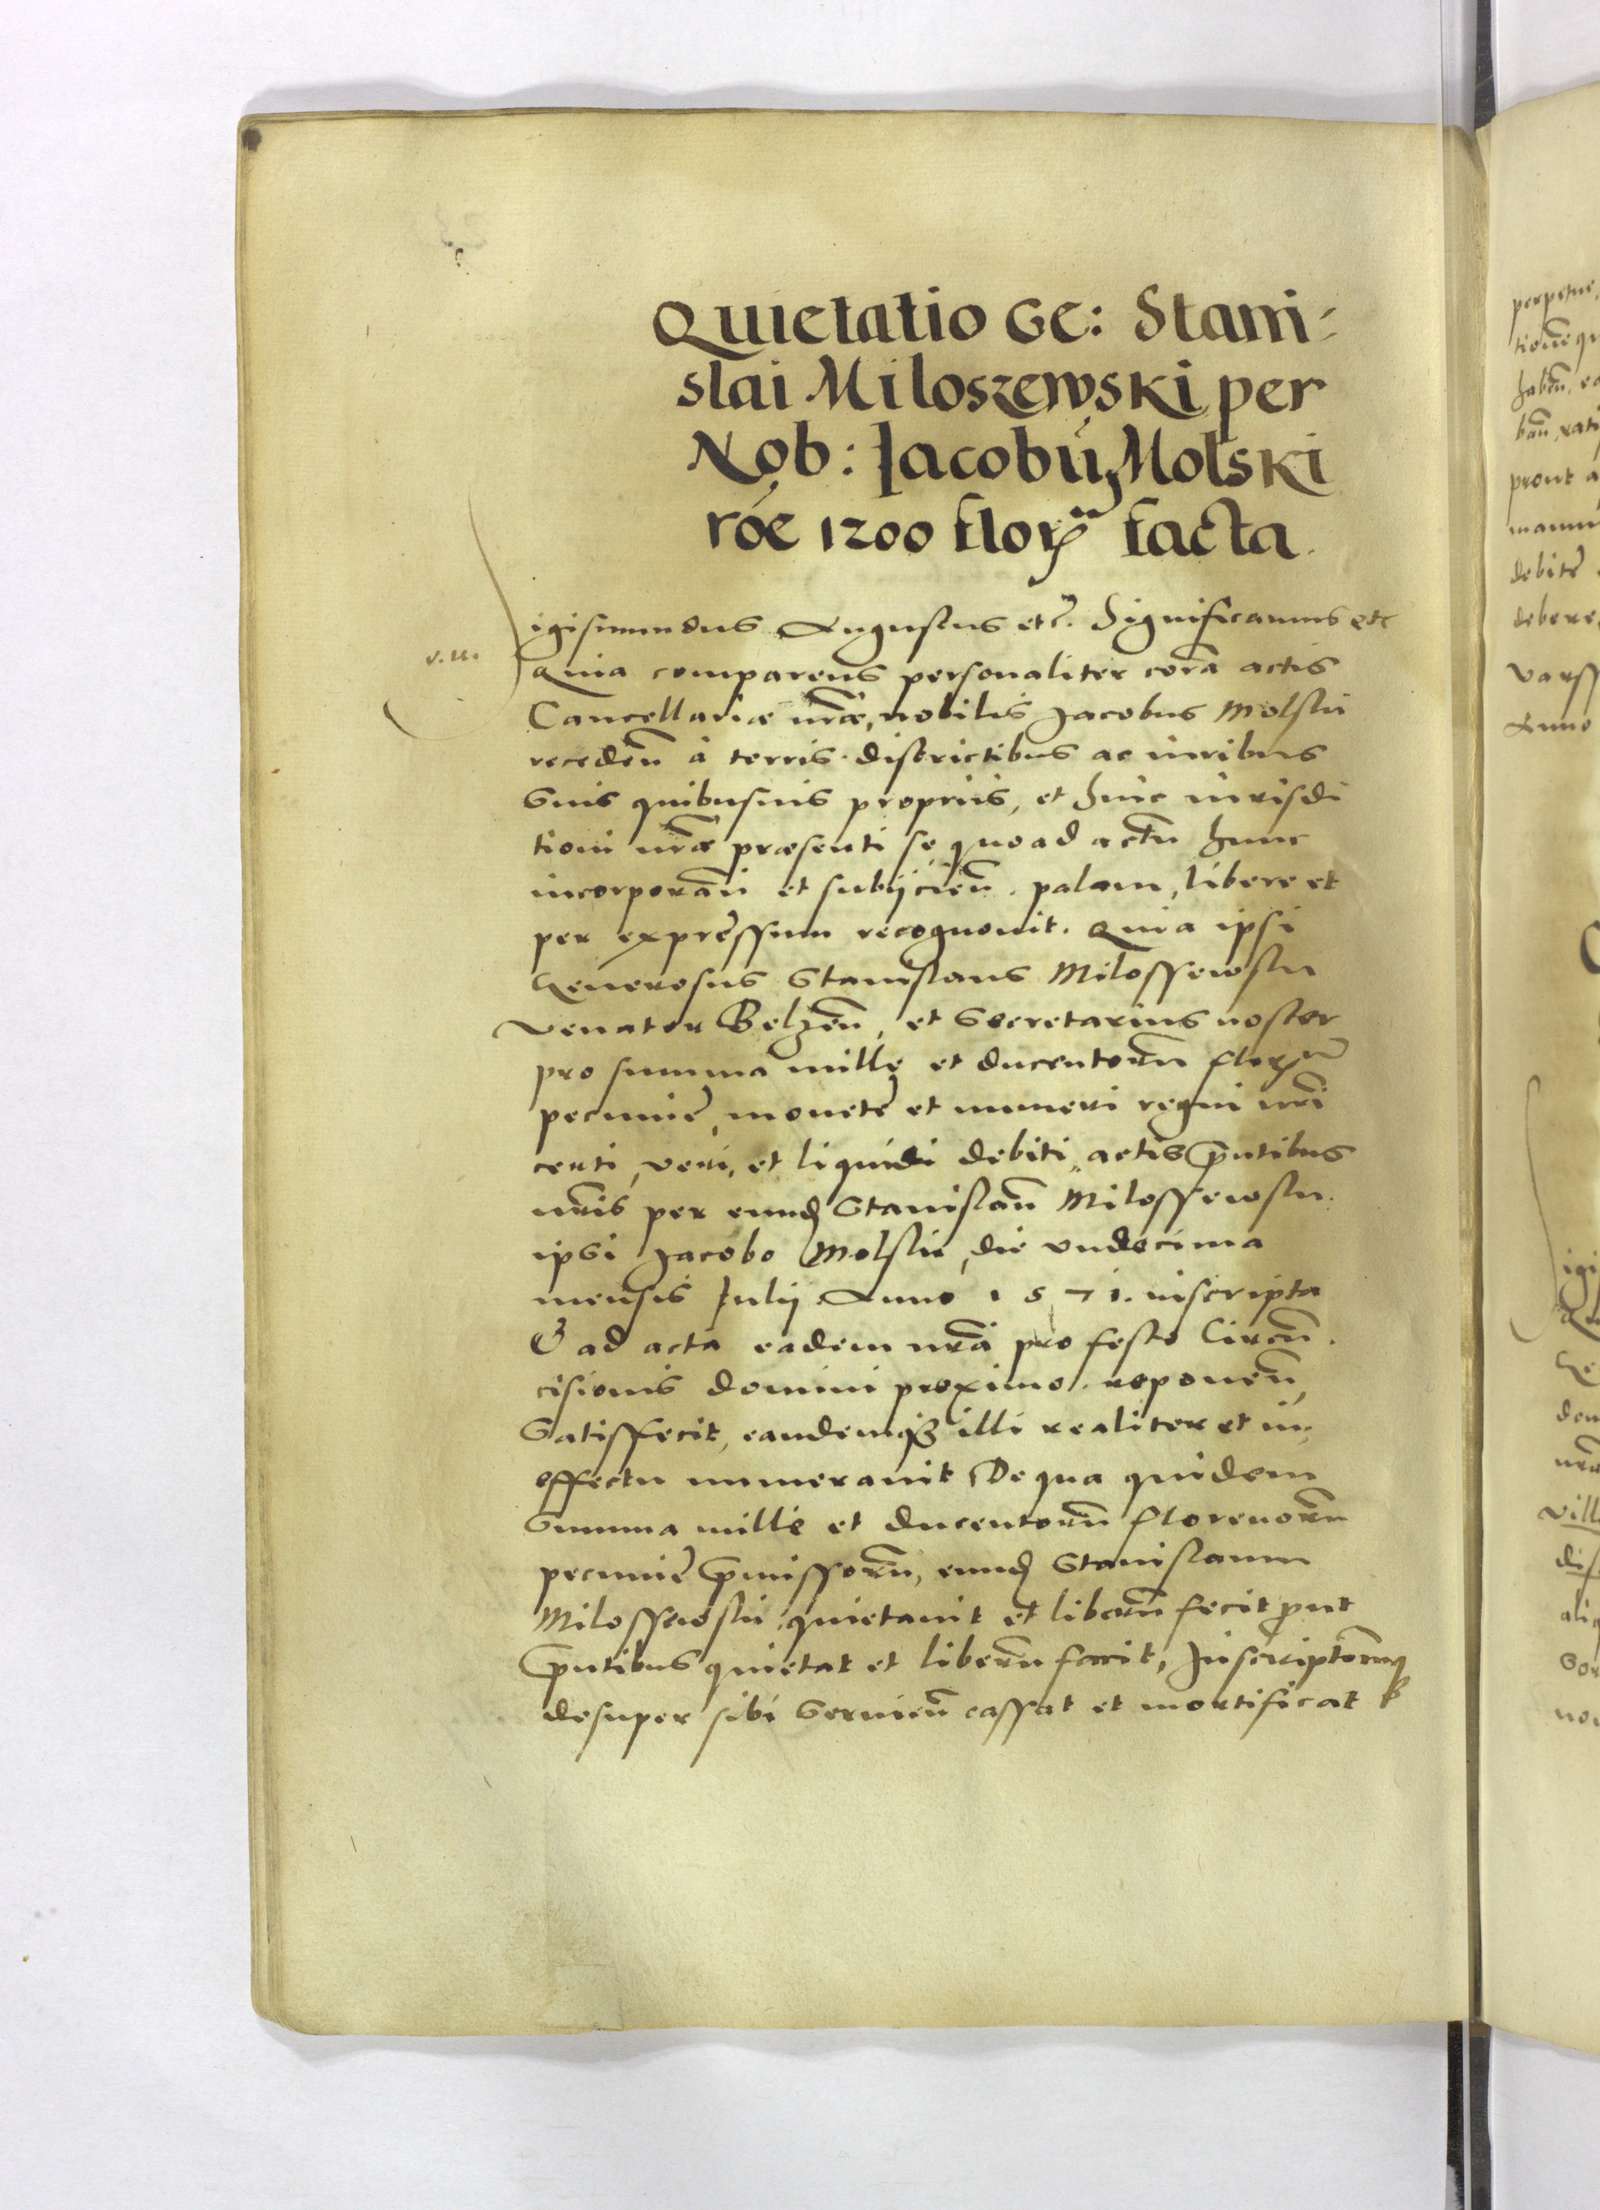 Quietatio Ge: Stani-
slai Miloszewski per
Nob: Jacobū Molski
rōe 1200 florꝝ facta
Sigismundus Augustus etc. Significamus etc
v. u.
Quia comparens personaliter corā actis
Cancellariæ nr̄æ, nobilis Jacobus Molski
receden̄ à terris districtibus ac iuribus
suis quibusuis proprijs, et huic iurisdi
tioni nr̄æ præsenti se quoad actū hunc
incorporan̄ et subijcien̄. palam, libere et
per expressum recognouit. Quia ipsi
Generosus Stanislaus Milossewski
Venator Belzen̄, et Secretarius noster
pro summa mille et ducentorū florꝝ
pecuniē, monetē et numeri regni nr̄i
certi, veri, et liquidi debiti, actis pn̄tibus
nr̄is per eund̄ Stanislaū Milossewski
ipsi Jacobo Molski, die vndecima
mensis Julij Anno 1571. inscripta
& ad acta eadem nr̄a pro festo Circū
cisionis domini proximo. reponen̄,
satisfecit, eandemqꝫ illi realiter et in
effectu numerauit De qua quidem
summa mille et ducentorū florenorū
pecuniē p̄missorū, eund̄ Stanislaum
Milossewski quietauit et liberū fecit prout
pn̄tibus quietat et liberū facit, Inscriptionēqꝫ
desuper sibi seruien̄ cassat et mortificat
perpetue,
debitē
debere
Anno